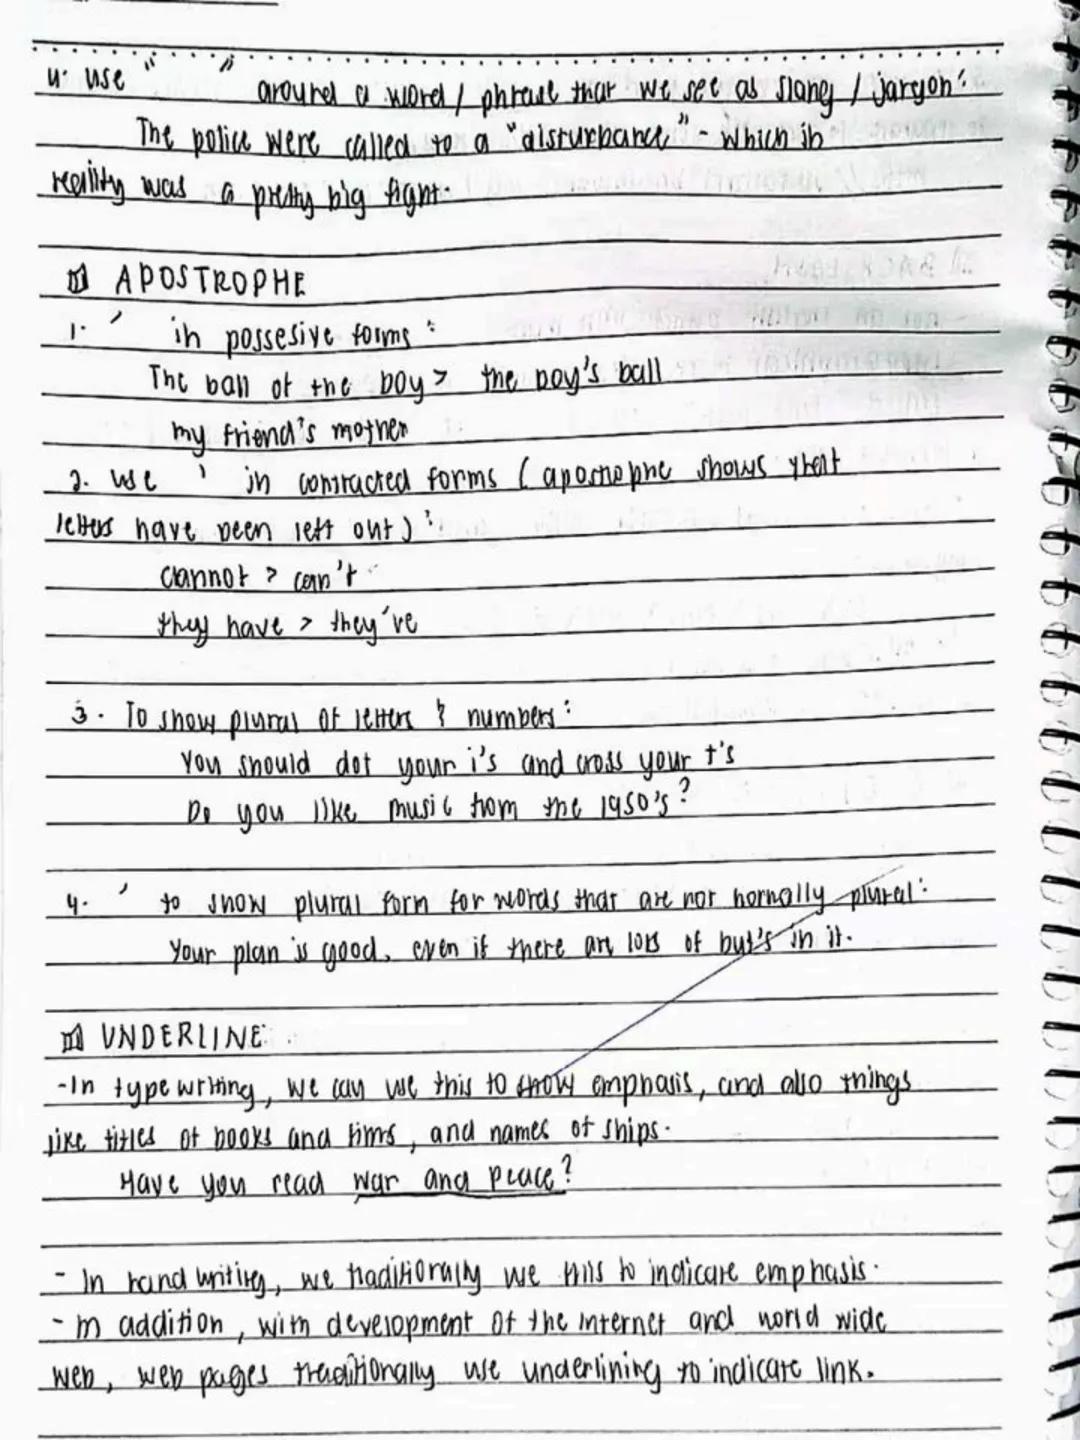 4. use " " around a word / phrase that we see as slang / Jargon :
The police were called to a "disturbance" - which in
reality was a pretty big fight
APOSTROPHE
1. ' in possesive forms :
The ball of the boy > the boy's ball
my friend's mother
2. use ' in contracted forms ( apostrophe shows that
letters have been left out ) :
cannot > can't
they have > they've
3. To show plural of letters & numbers :
You should dot your i's and cross your t's
Do you like music from the 1950's ?
4. ' to show plural form for words that are not normally plural :
Your plan is good, even if there are lots of but's in it.
UNDERLINE
- In type writing, we can use this to show emphasis, and also things
like titles of books and films, and names of ships.
Have you read war and peace ?
- In hand writing, we traditionally use this to indicate emphasis.
- In addition, with development of the internet and world wide
web, web pages traditionally use underlining to indicate link.